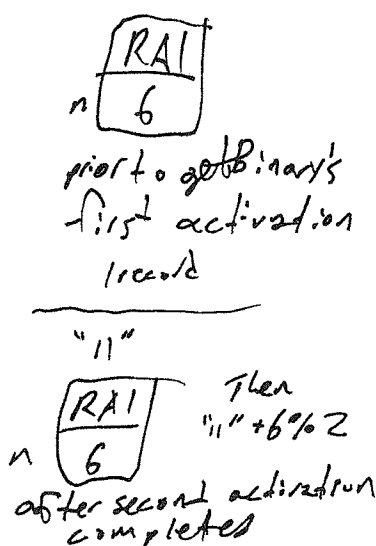 RA1
n 6
prior to getBinary's
first activation
record
"11"
RA1
n 6
Then
"11" + 6%2
after second activation
completes